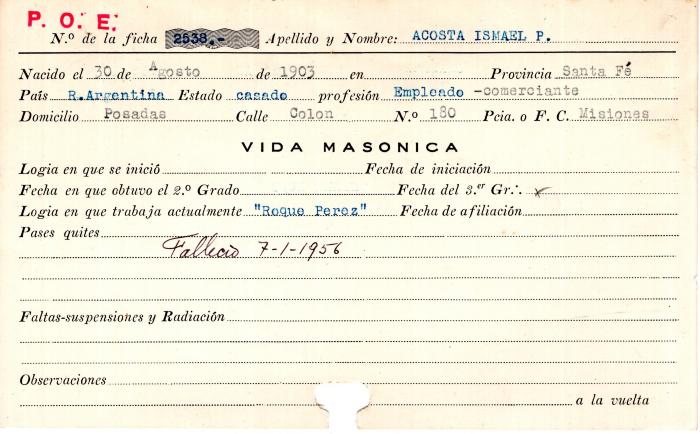 P. O. E.
N.º de la ficha 2538.- Apellido y Nombre: ACOSTA ISMAEL P.
Nacido el 30 de Agosto de 1903 en Provincia Santa Fé
País R.Argentina Estado casado profesión Empleado -comerciante
Domicilio Posadas Calle Colon N.º 180 Pcia. o F. C. Misiones
VIDA MASONICA
Logia en que se inició Fecha de iniciación
Fecha en que obtuvo el 2.º Grado Fecha del 3.er Gr∴
Logia en que trabaja actualmente "Roque Perez" Fecha de afiliación
Pases quites
Fallecio 7-1-1956
Faltas-suspensiones y Radiación
Observaciones
a la vuelta